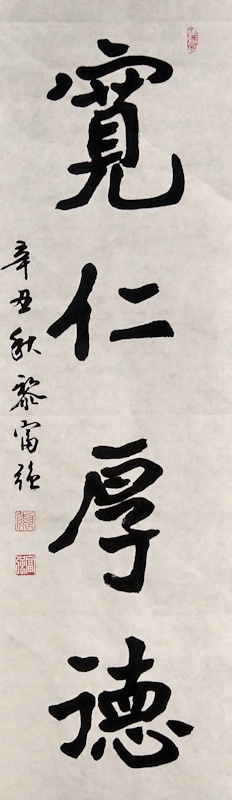 寬仁厚德
辛丑秋黎富强